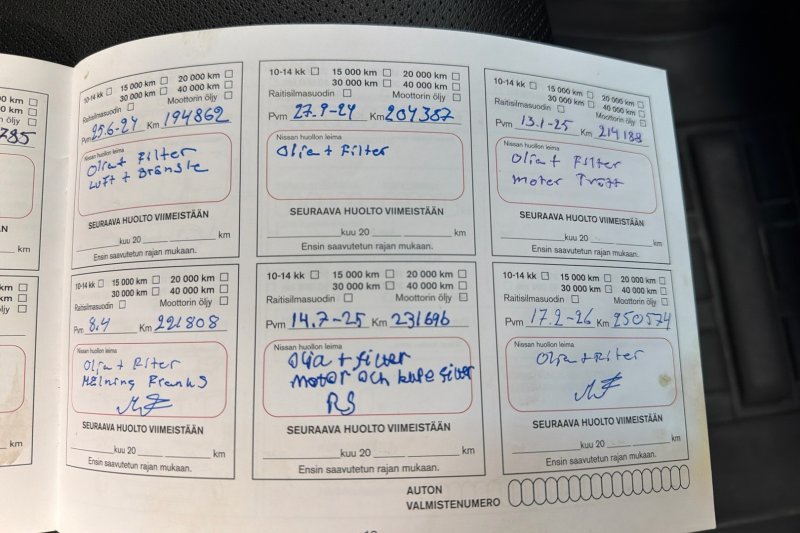 00 km
00 km
ljy
785
N
km
10-14 kk 15 000 km 20 000 km
30 000 km 40 000 km
Raitisilmasuodin Moottorin öljy
Pvm 25.6-24 Km 194862
Nissan huollon leima
Olja + Filter
Luft + Bränsle
SEURAAVA HUOLTO VIIMEISTÄÄN
kuu 20 km
Ensin saavutetun rajan mukaan.
10-14 kk 15 000 km 20 000 km
30 000 km 40 000 km
Raitisilmasuodin Moottorin öljy
Pvm 27.9-24 Km 204387
Nissan huollon leima
Olja + Filter
SEURAAVA HUOLTO VIIMEISTÄÄN
kuu 20 km
Ensin saavutetun rajan mukaan.
10-14 kk 15 000 km 20 000 km
30 000 km 40 000 km
Raitisilmasuodin Moottorin öljy
Pvm 13.1-25 Km 214188
Nissan huollon leima
Olja + Filter
moter Trött
SEURAAVA HUOLTO VIIMEISTÄÄN
kuu 20 km
Ensin saavutetun rajan mukaan.
km
km
ljy
N
km
10-14 kk 15 000 km 20 000 km
30 000 km 40 000 km
Raitisilmasuodin Moottorin öljy
Pvm 8.4 Km 221808
Nissan huollon leima
Olja +
SEURAAVA HUOLTO VIIMEISTÄÄN
kuu 20 km
Ensin saavutetun rajan mukaan.
10-14 kk 15 000 km 20 000 km
30 000 km 40 000 km
Raitisilmasuodin Moottorin öljy
Pvm 14.7-25 Km 231696
Nissan huollon leima
Olja + filter
motor och filter
RS
SEURAAVA HUOLTO VIIMEISTÄÄN
kuu 20 km
Ensin saavutetun rajan mukaan.
10-14 kk 15 000 km 20 000 km
30 000 km 40 000 km
Raitisilmasuodin Moottorin öljy
Pvm 17.2-26 Km 250574
Nissan huollon leima
SEURAAVA HUOLTO VIIMEISTÄÄN
kuu 20 km
Ensin saavutetun rajan mukaan.
AUTON
VALMISTENUMERO